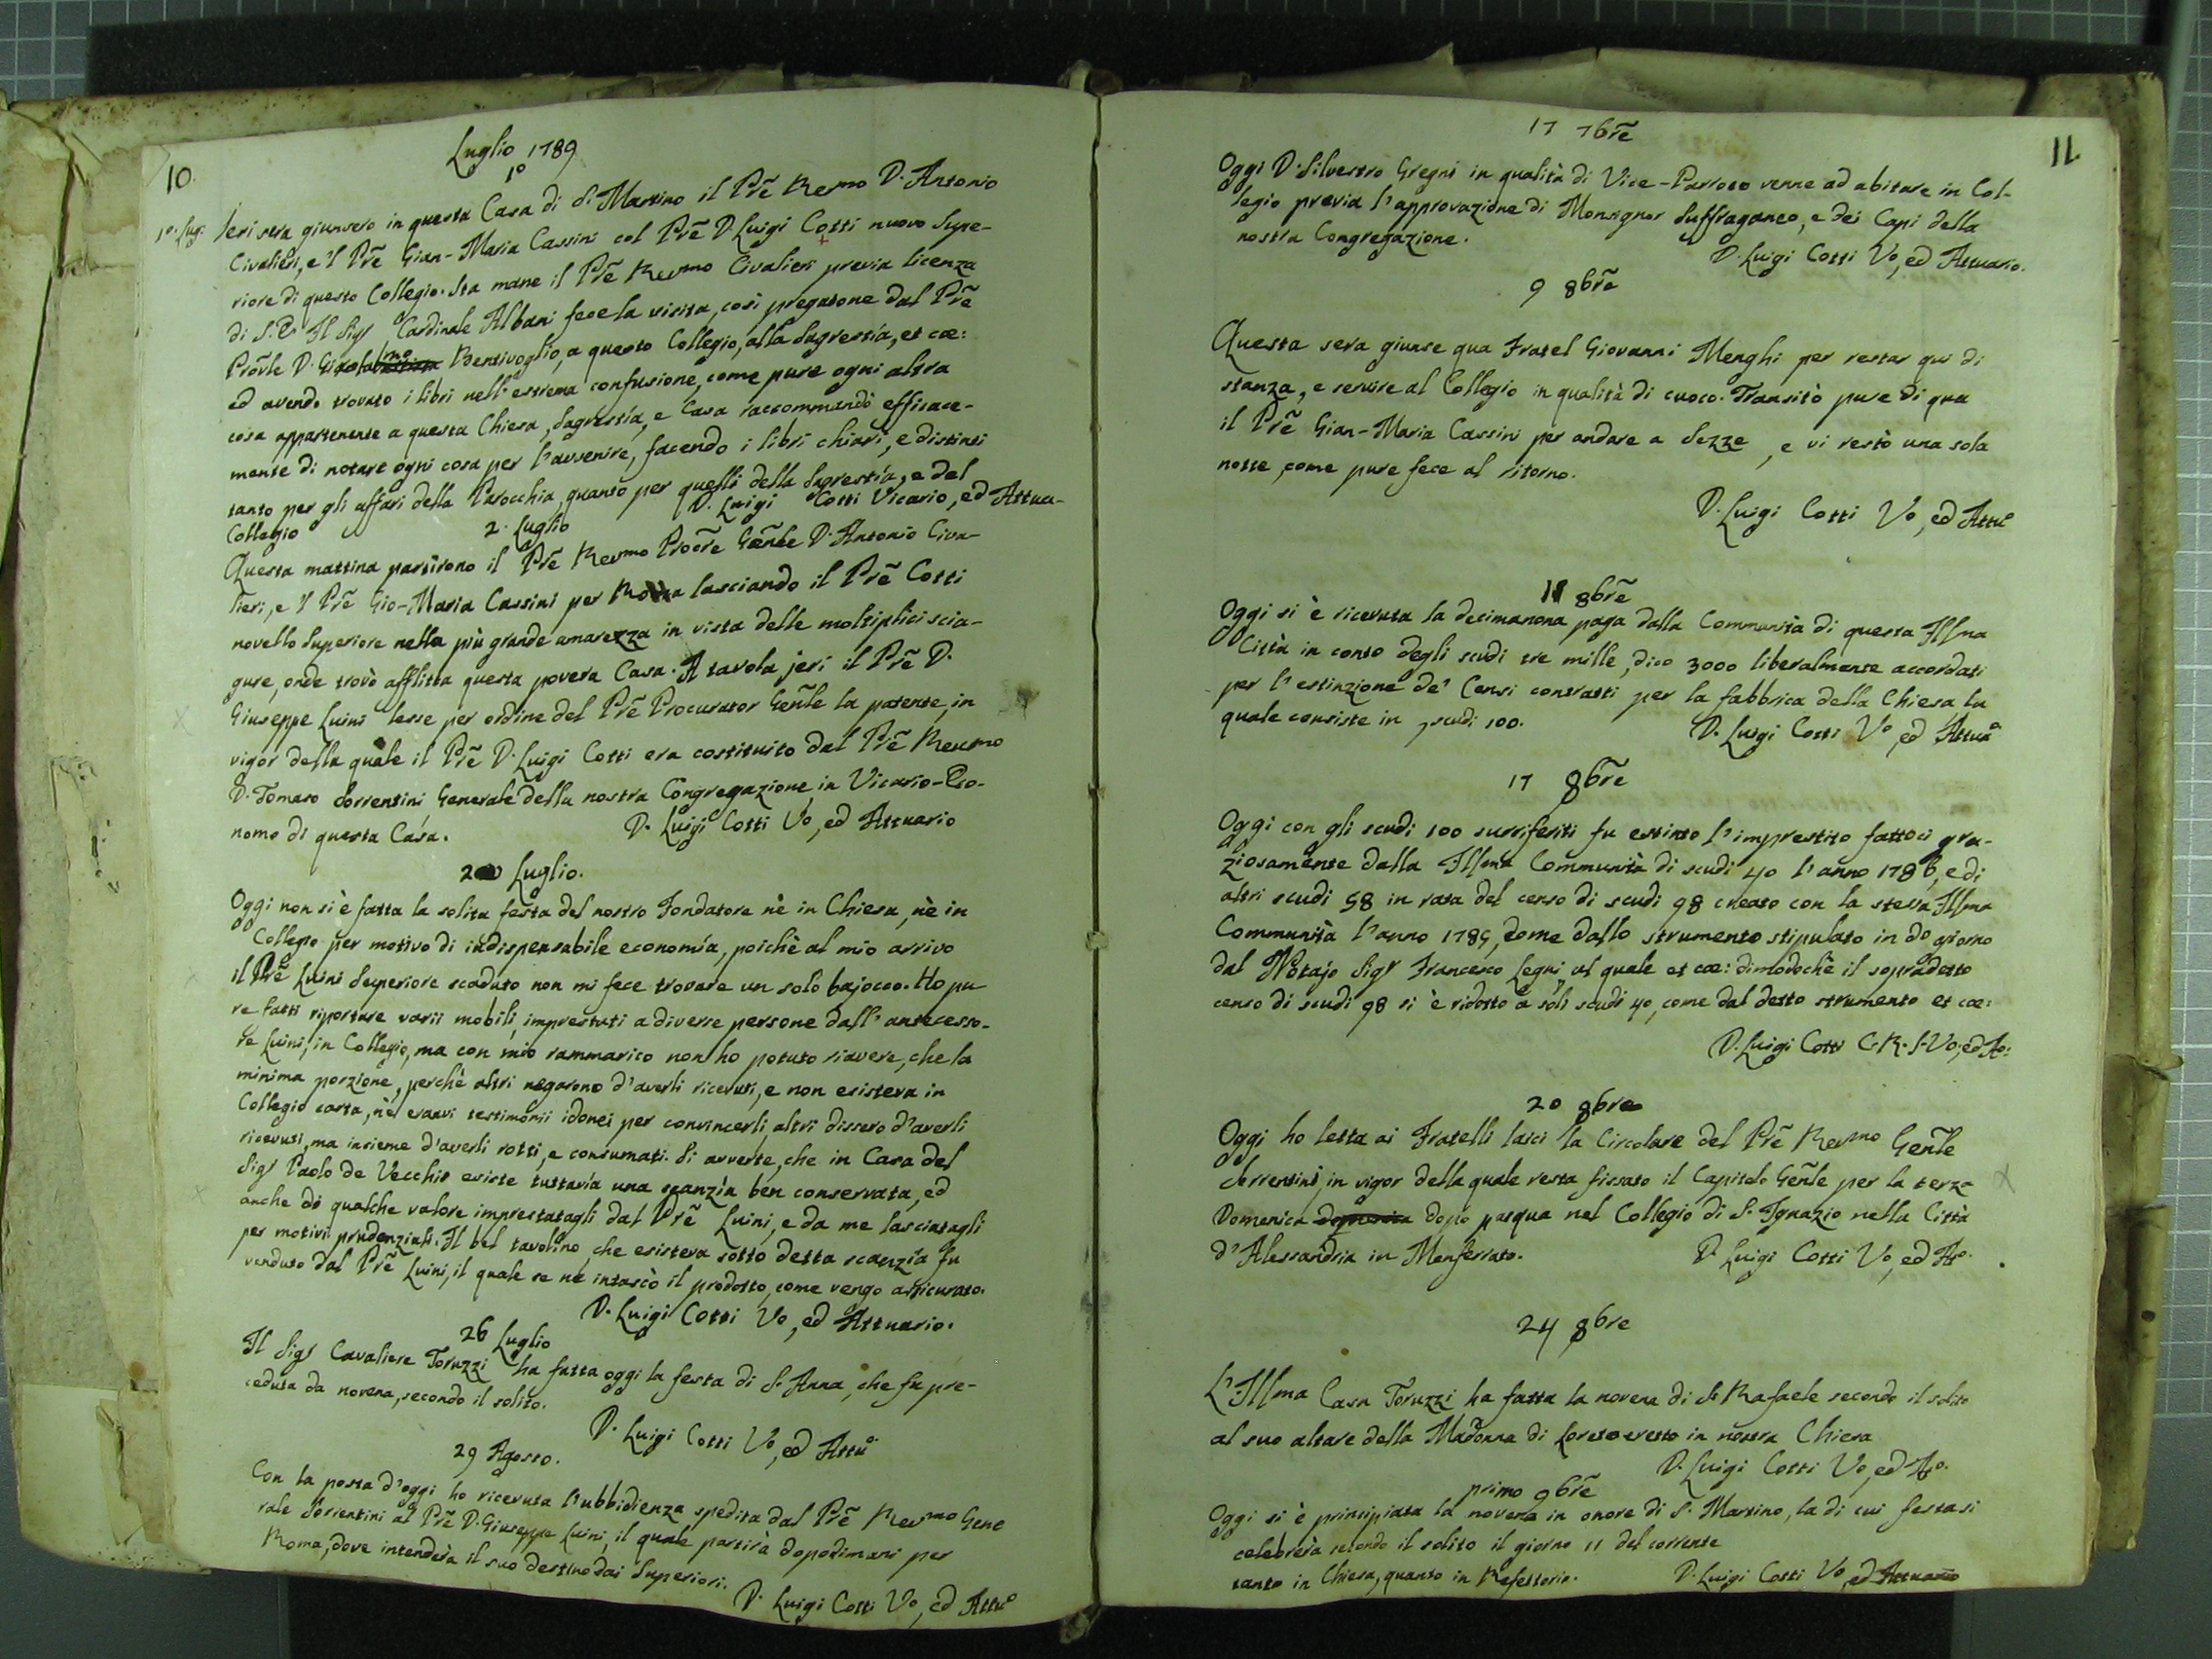 10.
Luglio 1789
1º
1º. Lug:
Jeri sera giunsero in questa Casa di S. Martino il Prẽ Revmo D. Antonio
Civalieri, e 'l Prẽ Gian-Maria Cassini col Prẽ D. Luigi Cotti nuovo Supe-
riore di questo Collegio. Sta mane il Prẽ Revmo Civalieri previa licenza
di S. E. Il Sigr Cardinale Albani fece la visita, così pregatone dal Prẽ
Prõvle D. Girolamo Bentivoglio, a questo Collegio, alla Sagrestía, et cæ:
ed avendo trovato i libri nell'estrema confusione, come pure ogni altra
cosa appartenente a questa Chiesa, Sagrestía, e Casa raccommandò efficace-
mente di notare ogni cosa per l'avvenire, facendo i libri chiari, e distinti
tanto per gli affari della Parocchia, quanto per quelli della Sagrestía, e del
Collegio D. Luigi Cotti Vicario, ed Attua-
2. Luglio
Questa mattina partirono il Prẽ Revmo Procrẽ Gẽnle D. Antonio Civa-
lieri, e 'l Prẽ Gio-Maria Cassini per Roma lasciando il Prẽ Cotti
novello Superiore nella più grande amarezza in vista delle moltiplici scia-
gure, onde trovò afflitta questa povera Casa. A tavola jeri il Prẽ D.
Giuseppe Luini lesse per ordine del Prẽ Procurator Gẽnle la patente, in
vigor della quale il Prẽ D. Luigi Cotti era costituito dal Prẽ Revmo
D. Tomaso Sorrentini Generale della nostra Congregazione in Vicario-Eco-
nomo di questa Casa. D. Luigi Cotti Vo, ed Attuario
20 Luglio.
Oggi non si è fatta la solita festa del nostro Fondatore nè in Chiesa, nè in
Collegio per motivo di indispensabile economía, poichè al mio arrivo
il Prẽ Luini Superiore scaduto non mi fece trovare un solo bajocco. Ho pu
re fatti riportare varii mobili, imprestati a diverse persone dall'antecesso-
re Luini, in Collegio, ma con mio rammarico non ho potuto riavere, che la
minima porzione, perchè altri negarono d'averli ricevuti, e non esisteva in
Collegio carta, nè eranvi testimonii idonei per convincerli, altri dissero d'averli
ricevuti, ma insieme d'averli rotti, e consumati. Si avverte, che in Casa del
Sigr Paolo de Vecchis esiste tuttavía una scanzía ben conservata, ed
anche di qualche valore imprestatagli dal Prẽ Luini, e da me lasciatagli
per motivi prudenziali. Il bel tavolino, che esisteva sotto detta scanzía fu
venduto dal Prẽ Luini, il quale se ne intascò il prodotto, come vengo assicurato.
D. Luigi Cotti Vo, ed Attuario.
26 Luglio
Il Sigr Cavaliere Toruzzi ha fatta oggi la festa di S. Anna, che fu pre-
ceduta da novena, secondo il solito.
D. Luigi Cotti Vo, ed Attuo
29 Agosto.
Con la posta d'oggi ho ricevuta l'ubbidienza spedita dal Prẽ Revmo Gene
rale Sorrentini al Prẽ D. Giuseppe Luini, il quale partirà dopodimani per
Roma, dove intenderà il suo destino dai Superiori.
D. Luigi Cotti Vo, ed Attuo
11.
17 7brẽ
Oggi D. Silvestro Gregni in qualità di Vice-Parroco venne ad abitare in Col-
legio previa l'approvazione di Monsignor Suffraganeo, e dei Capi della
nostra Congregazione.
D. Luigi Cotti Vo, ed Attuario.
9 8brẽ
Questa sera giunse qua Fratel Giovanni Menghi per restar qui di
stanza, e servire al Collegio in qualità di cuoco. Transitò pure di qua
il Prẽ Gian-Maria Cassini per andare a Sezze, e vi restò una sola
notte, come pure fece al ritorno.
D. Luigi Cotti Vo, ed Attuo
11 8brẽ
Oggi si è ricevuta la decimanona paga dalla Communità di questa Illma
Città in conto degli scudi tre mille, dico 3000 liberalmente accordati
per l'estinzione de' Censi contratti per la fabbrica della Chiesa la
quale consiste in scudi 100. D. Luigi Cotti Vo, ed Attuao
17 8brẽ
Oggi con gli scudi 100 surriferiti fu estinto l'imprestito fattoci gra-
ziosamente dalla Illma Communità di scudi 40 l'anno 1786, e di
altri scudi 58 in rata del censo di scudi 98 creato con la stessa Illma
Communità l'anno 1785, come dallo strumento stipulato in do giorno
dal Notajo Sigr Francesco Legni, al quale et cæ: dimodochè il sopradetto
censo di scudi 98 si è ridotto a soli scudi 40, come dal detto strumento et cæ:
D. Luigi Cotti C. R. S. Vo, ed Ao:
20 8bre
Oggi ho letta ai Fratelli laici la Circolare del Prẽ Revmo Gẽnle
Sorrentini, in vigor della quale resta fissato il Capitolo Gẽnle per la terza
Domenica domenica dopo pasqua nel Collegio di S. Ignazio nella Città
d'Alessandria in Monferrato. D. Luigi Cotti Vo, ed Ao.
24 8bre
L'Illma Casa Toruzzi ha fatta la novena di S. Rafaele secondo il solito
al suo altare della Madonna di Loreto eretto in nostra Chiesa
D. Luigi Cotti Vo, ed Ao.
primo 9brẽ
Oggi si è principiata la novena in onore di S. Martino, la di cui festa si
celebrerà secondo il solito il giorno 11 del corrente
tanto in Chiesa, quanto in Refettorio. D. Luigi Cotti Vo, ed Attuario